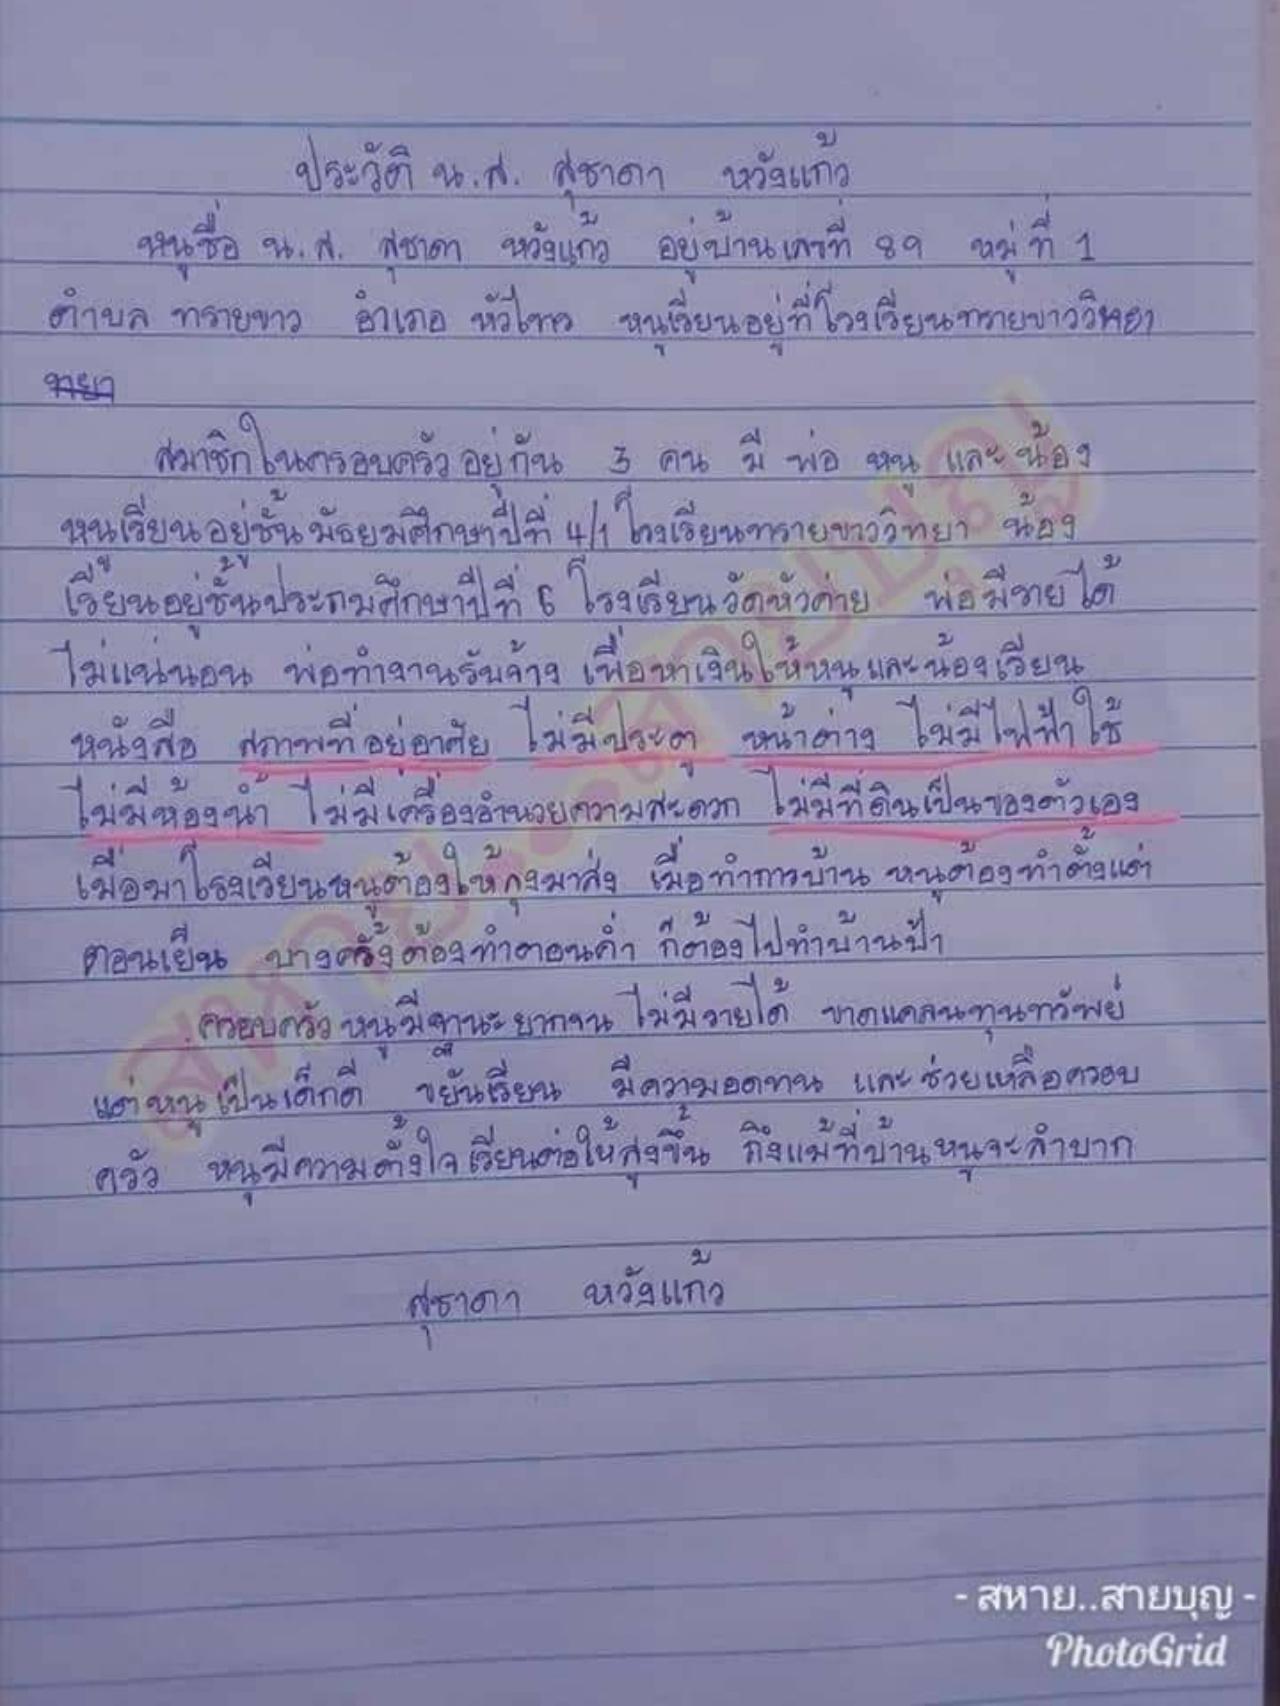 ประวัติ น.ส. สุชาดา หวังแก้ว
หนูชื่อ น.ส. สุชาดา หวังแก้ว อยู่บ้านเลขที่ 89 หมู่ที่ 1
ตำบล ทรายขาว อำเภอ หัวไทร หนูเรียนอยู่ที่โรงเรียนทรายขาววิทยา
ทยา
สมาชิกในครอบครัวอยู่กัน 3 คน มี พ่อ หนู และ น้อง
หนูเรียนอยู่ชั้นมัธยมศึกษาปีที่ 4/1 โรงเรียนทรายขาววิทยา น้อง
เรียนอยู่ชั้นประถมศึกษาปีที่ 6 โรงเรียนวัดหัวค่าย พ่อมีรายได้
ไม่แน่นอน พ่อทำงานรับจ้าง เพื่อหาเงินให้หนูและน้องเรียน
หนังสือ สภาพที่อยู่อาศัย ไม่มีประตู หน้าต่าง ไม่มีไฟฟ้าใช้
ไม่มีห้องน้ำ ไม่มีเครื่องอำนวยความสะดวก ไม่มีที่ดินเป็นของตัวเอง
เมื่อมาโรงเรียนหนูต้องให้ลุงมาส่ง เมื่อทำการบ้าน หนูต้องทำตั้งแต่
ตอนเย็น บางครั้งต้องทำตอนค่ำ ก็ต้องไปทำบ้านป้า
ครอบครัวหนูมีฐานะยากจน ไม่มีรายได้ ขาดแคลนทุนทรัพย์
แต่หนูเป็นเด็กดี ขยันเรียน มีความอดทน และช่วยเหลือครอบ
ครัว หนูมีความตั้งใจเรียนต่อให้สูงขึ้น ถึงแม้ที่บ้านหนูจะลำบาก
สุชาดา หวังแก้ว
สหาย..สายบุญ
- สหาย..สายบุญ -
PhotoGrid